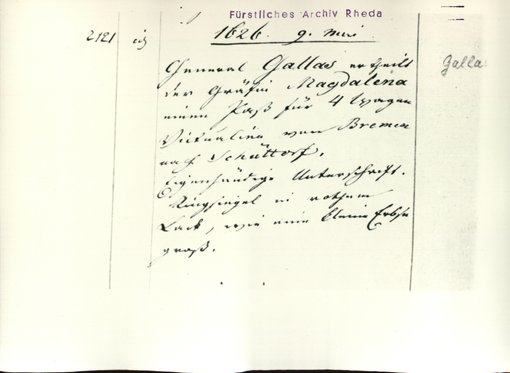 Fürstliches Archiv Rheda
2121
1626. 9. Mai.
General Gallas ertheilt
der Gräfin Magdalena
einen Paß für 4 Wagen
Victualien von Bremen
nach Schüttorf.
Eigenhändige Unterschrift.
Ringsiegel in rothem
Lack, wie eine kleine Erbse
groß.
Galla